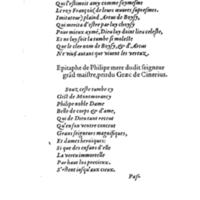 Qui l'estimoit amy comme soymesme
Le roy François de leurs œuvres supresmes.
Imitateur, plaind Artus de Boysy,
Qui merita d'estre par luy choysy
Pour mieux aymé, Dieu luy doint lieu celeste,
Et ne luy soit la tumbe si moleste
Que le cler nom de Boysy, & d'Artus
Ne vive autant que vivent les vertuz.
Epitaphe de Philipe mere dudit seigneur
grãd maistre, prinsdu Grec de Cinerius.
Souz ceste tumbe cy
Gist de Montmorancy
Philipe noble Dame
Belle de corps & d'ame,
Qui de Dieu tant receut
Qu'en son ventre conceut
Grans seigneurs magnifiques,
Et dames heroiques:
Si que des enfans d'elle
La vertu immortelle
Par haut los precieux.
S'estent iusqu'aux cieux.
Pass.